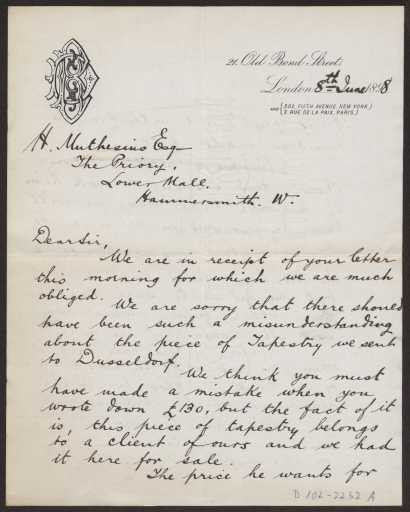 21. Old Bond Street.
London 8th June 1898
AND (303, FIFTH AVENUE, NEW YORK.)
(2 RUE DE LA PAIX, PARIS.)
H. Muthesius Esq
The Priory,
Lower Mall.
Hammersmith. W.
Dear Sir,
We are in receipt of your letter
this morning for which we are much
obliged.
We are sorry that there should
have been such a misunderstanding
about the piece of Tapestry we sent
to Dusseldorf.
We think you must
have made a mistake when you
wrote down £130, but the fact of it
is, this piece of tapestry belongs
to a client of ours and we had
it here for sale.
The price he wants for
D 102-2252 A